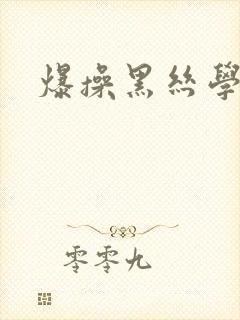 爆操黑丝學
零零九